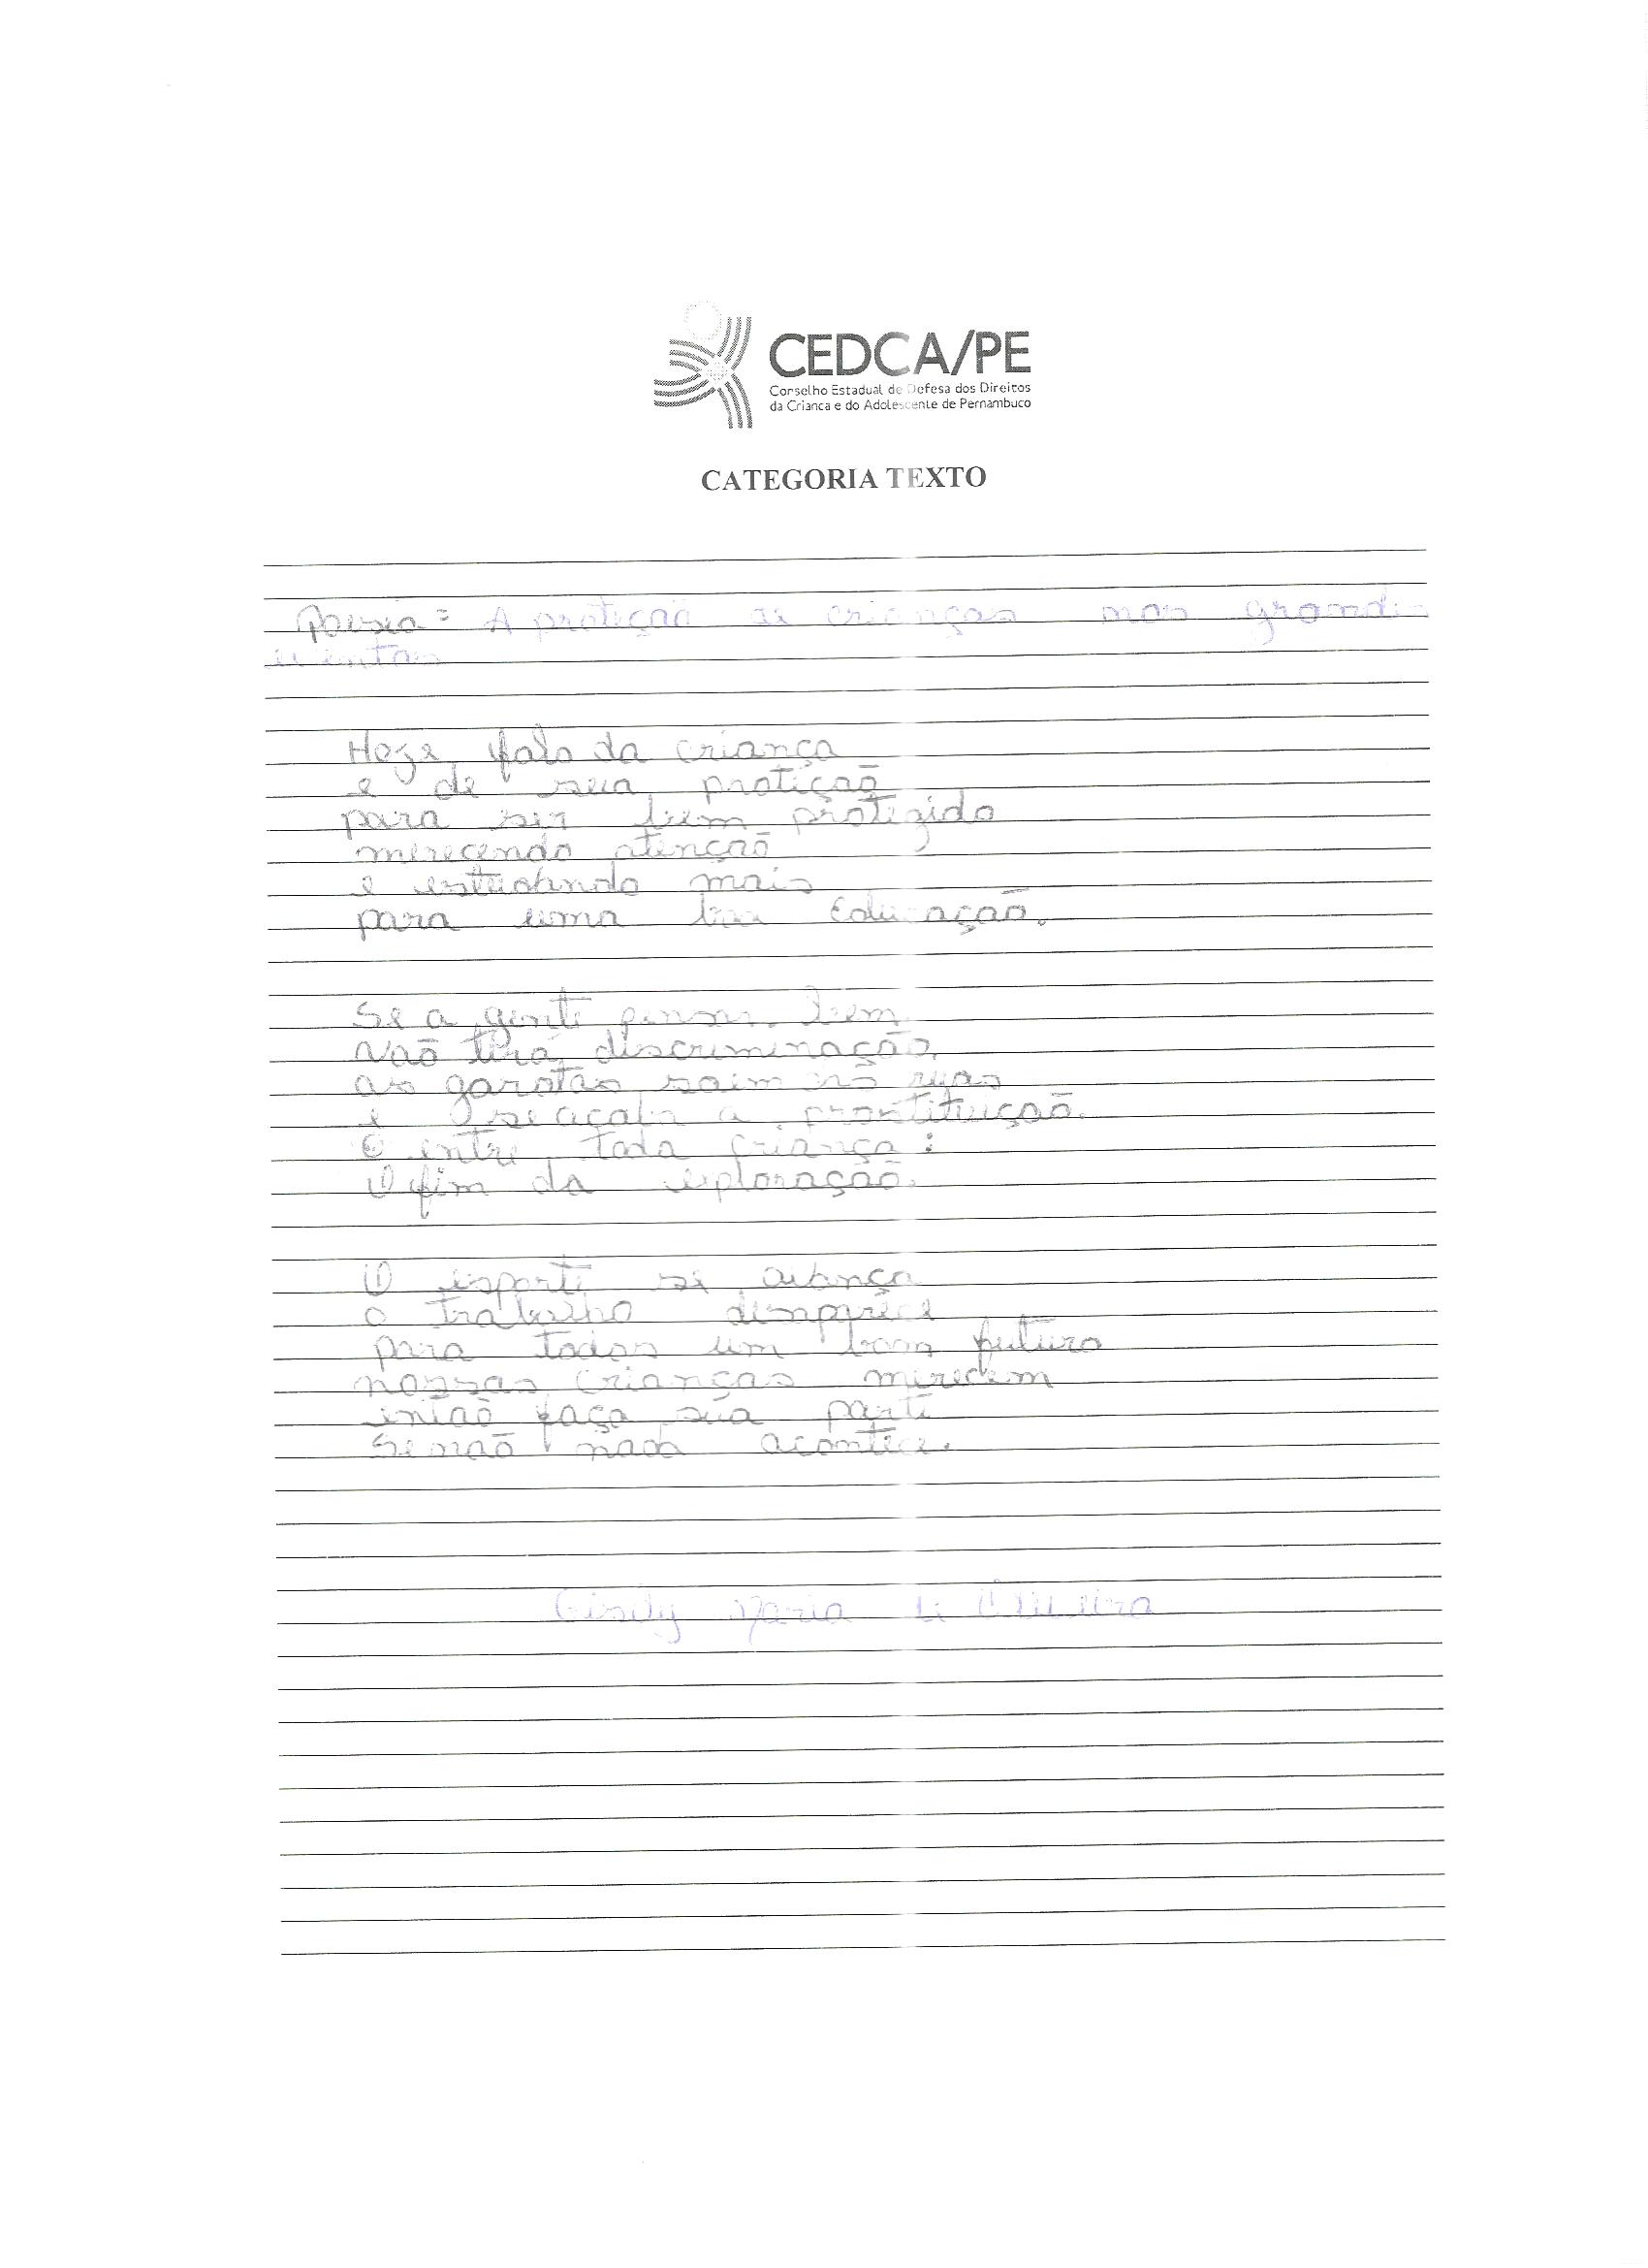 CEDCA/PE
Conselho Estadual de Defesa dos Direitos
da Criança e do Adolescente de Pernambuco
CATEGORIA TEXTO
Poesia = A proteção de crianças nos grandes
eventos
Hoje falo da criança
e de sua proteção
para ser bem protegido
merecendo atenção
e estudando mais
para uma boa Educação.
Se a gente pensar bem
Não terá discriminação,
as garotas saim nas ruas
e se acaba a prostituição.
E entre toda criança:
O fim da exploração.
O esporte se avança
o trabalho desaparece
para todos um bom futuro
nossas crianças merecem
então faça sua parte
Senão nada acontece.
Gisely Maria de Oliveira